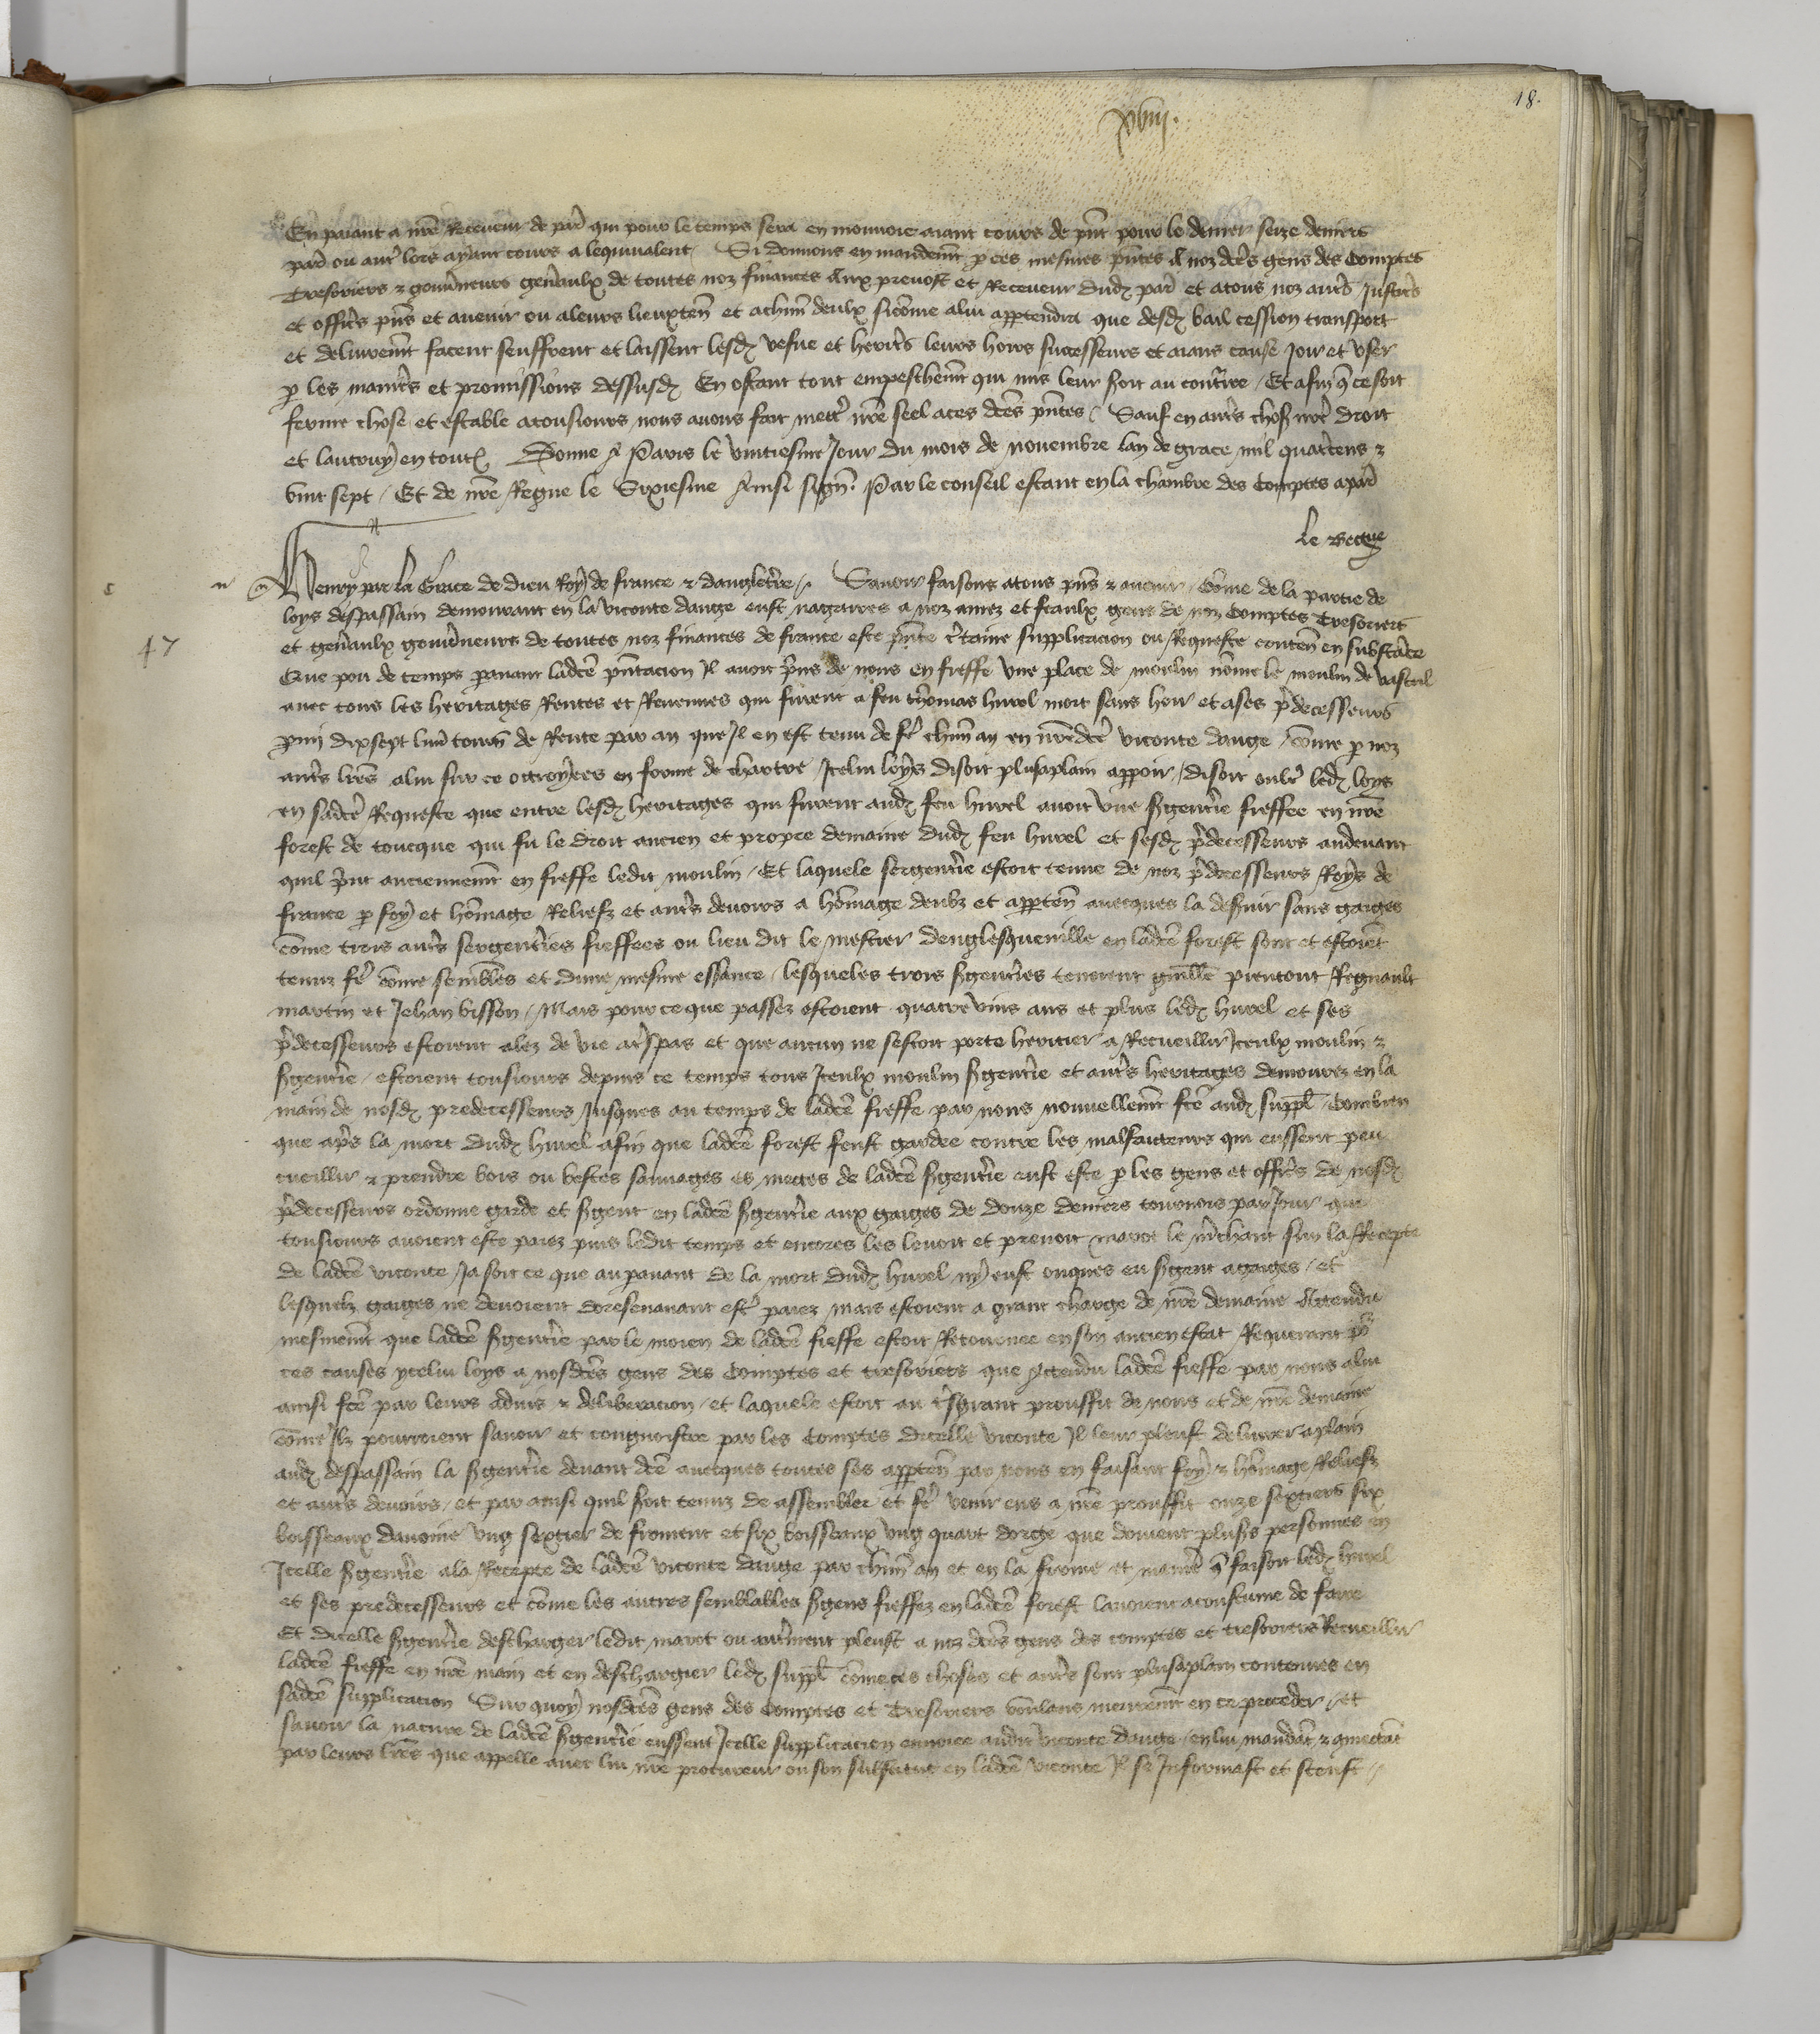 18.
xviii.
En paiant a nre Receveur de par̃ qui pour le temps sera en monnoie aiant cours de pñt pour le denier seze deniers
par̃ ou autr̃ lors ayant cours a lequivalent / Si donnons en mandemt̃ p ces mesmes pñtes A noz dc̃es gens des Comptes
Tresoriers & gouũneurs geñaulx de toutes noz finances Aux prevost et Receveur dud par̃ et a tous noz autr̃s Justic̃s
et offic̃s pñs et avenir ou a leurs lieuxten̄ et a chũn deulx si cōme a lui appartendra que desd bail cession transport
et delivremt̃ facent seuffrent et laissent lesd vesve et herit̃s leurs hoirs successeurs et aians cause Joir et user
p les manier̃s et promissions dessusd En ostant tout empeschemt̃ qui mis leur soit au contr̃ire / Et afin q̃ ce soit
ferme chose et estable a tousiours nous avons fait mettr̃ nr̃e seel a ces dc̃es pñtes / Sauf en autr̃s choses nr̃e droit
et lautruy en toutes Donne A Paris le vintiesme Jour du mois de novembre lan de grace mil quatr̃cens &
vint sept / Et de nr̃e Regne le Sixiesme Ainsi sign̄. Par le conseil estant en la chambre des Comptes a par̃
le Begue
47
Henry par la Grace de Dieu Roy de france & dangletr̃re /. Savoir faisons a tous pñs & avenir / Cōme de la partie de
loys despassain demourant en la viconte dauge eust nagaires a noz amez et feaulx gens de noz Comptes Tresoriers
et geñaulx gouũneurs de toutes noz finances de france este pñte c̃taine supplicacion ou Requeste conten̄ en substāce
Que pou de temps p avant ladc̃e pñtacion Il avoit p̃ns de nous en fieffe une place de moulin nōme le moulin de vasteil
avec tous les heritages Rentes et Revenues qui furent a feu thomas hurel mort sans hoir et a ses p̃decesseurs
p mi dix sept livr̃ tourñ de Rente par an que Il en est tenu de fr̃ chũn an en nr̃e dc̃e viconte dauge / cōme p noz
autr̃s lr̃es a lui sur ce octroyees en forme de chartre Icelui loys disoit plus a plain apparoir / disoit oultr̃ led loys
en sadc̃e Requeste que entre lesd heritages qui furent aud feu hurel avoit une sg̃entr̃ie fieffee en nr̃e
forest de toucque qui fu le droit ancien et propre demaine dud feu hurel et sesd p̃decesseurs au devant
quil p̃nt anciennemt̃ en fieffe ledit moulin / Et laquele sergentr̃ie estoit tenue de noz p̃decesseurs Roys de
france p foy et hōmage Reliefz et autr̃s devoirs a hōmage deubz et apparten̄ avecques la desſvir sans gaiges
cōme trois autr̃s sergentr̃ies fieffees ou lieu dit le mestier denglesqueville en ladc̃e forest sont et estoiēt
tenuz fr̃ cōme sembl̃es et dune mesme essance / lesqueles trois sg̃entr̃ies tenoient guill̃e pientout Regnault
martin et Jehan bisson / Mais pour ce que passez estoient quatre vins ans et plus led hurel et ses
p̃decesseurs estoient alez de vie a tr̃spas et que aucun ne sestoit porte heritier a Recueillir Iceulx moulin &
sg̃entr̃ie / estoient tousiours depuis ce temps tous Iceulx moulin sg̃entr̃ie et autr̃s heritages demourez en la
main de nosd predecesseurs Jusques au temps de ladc̃e fieffe par nous nouvellemt̃ fc̃e aud suppl̃ / Combien
que apr̃s la mort dud hurel afin que ladc̃e forest feust gardee contre les malfaiteurs qui eussent peu
cueillir & prendre bois ou bestes sauvages es meges de ladc̃e sg̃entr̃ie eust este p les gens et offic̃s de nosd
p̃decesseurs ordonne garde et sg̃ent en ladc̃e sg̃entr̃ie aux gaiges de douze deniers tournois par Jour que
tousiours avoient este paiez puis ledit temps et encores les levoit et prenoit marot le m̃chant sur la Recepte
de ladc̃e viconte / Ja soit ce que au p avant de la mort dud hurel ny eust onques eu sg̃ent a gaiges / et
lesquelz gaiges ne devoient doresenavant estr̃ paiez mais estoient a grant charge de nr̃e demaine Attendu
mesmemt̃ que ladc̃e sg̃entr̃ie par le moien de ladc̃e fieffe estoit Retournee en son ancien estat Requerant p̃
ces causes ycelui loys a nosdc̃es gens des Comptes et tresoriers que Attendu ladc̃e fieffe par nous a lui
ainsi fc̃e par leurs advis & deliberacion / et laquele estoit au tr̃sgrant prouffit de nous et de nr̃e demaine
cōme Ilz pourroient savoir et congnoistre par les Comptes dicelle viconte Il leur pleust delivrer a plain
aud despassain la sg̃entr̃ie devant dc̃e avecques toutes ses apparten̄ par nous en faisant foy & hōmage Reliefz
et autr̃s devoirs / et par ainsi quil soit tenuz de assembler et fr̃ venir ens a nr̃e prouffit onze sextiers six
boisseaux davoine ung sextier de froment et six boisseaux ung quart dorge que doivent plus̃s personnes en
Icelle sg̃entr̃ie a la Recepte de ladc̃e viconte dauge par chũn an et en la forme et manier̃ q̃ faisoit led hurel
et ses predecesseurs et cōme les autres semblables sg̃ens fieffez en ladc̃e forest lavoient acoustume de faire
Et dicelle sg̃entr̃ie descharger ledit marot ou autr̃ment pleust a noz dc̃es gens des comptes et tresoriers Recueillir
ladc̃e fieffe en nr̃e main et en deschargier led suppl̃ cōme ces choses et autr̃s sont plus a plain contenues en
sadc̃e supplicacion Sur quoy nosdc̃es gens des Comptes et Tresoriers voulans meuremt̃ en ce proceder / et
savoir la nature de ladc̃e sg̃entr̃ie eussent Icelle supplicacion envoiee audit viconte dauge / en lui mandāt & cōmectāt
par leurs lr̃es que appelle avec lui nr̃e procureur ou son substitut en ladc̃e viconte Il se Informast et sceust /.